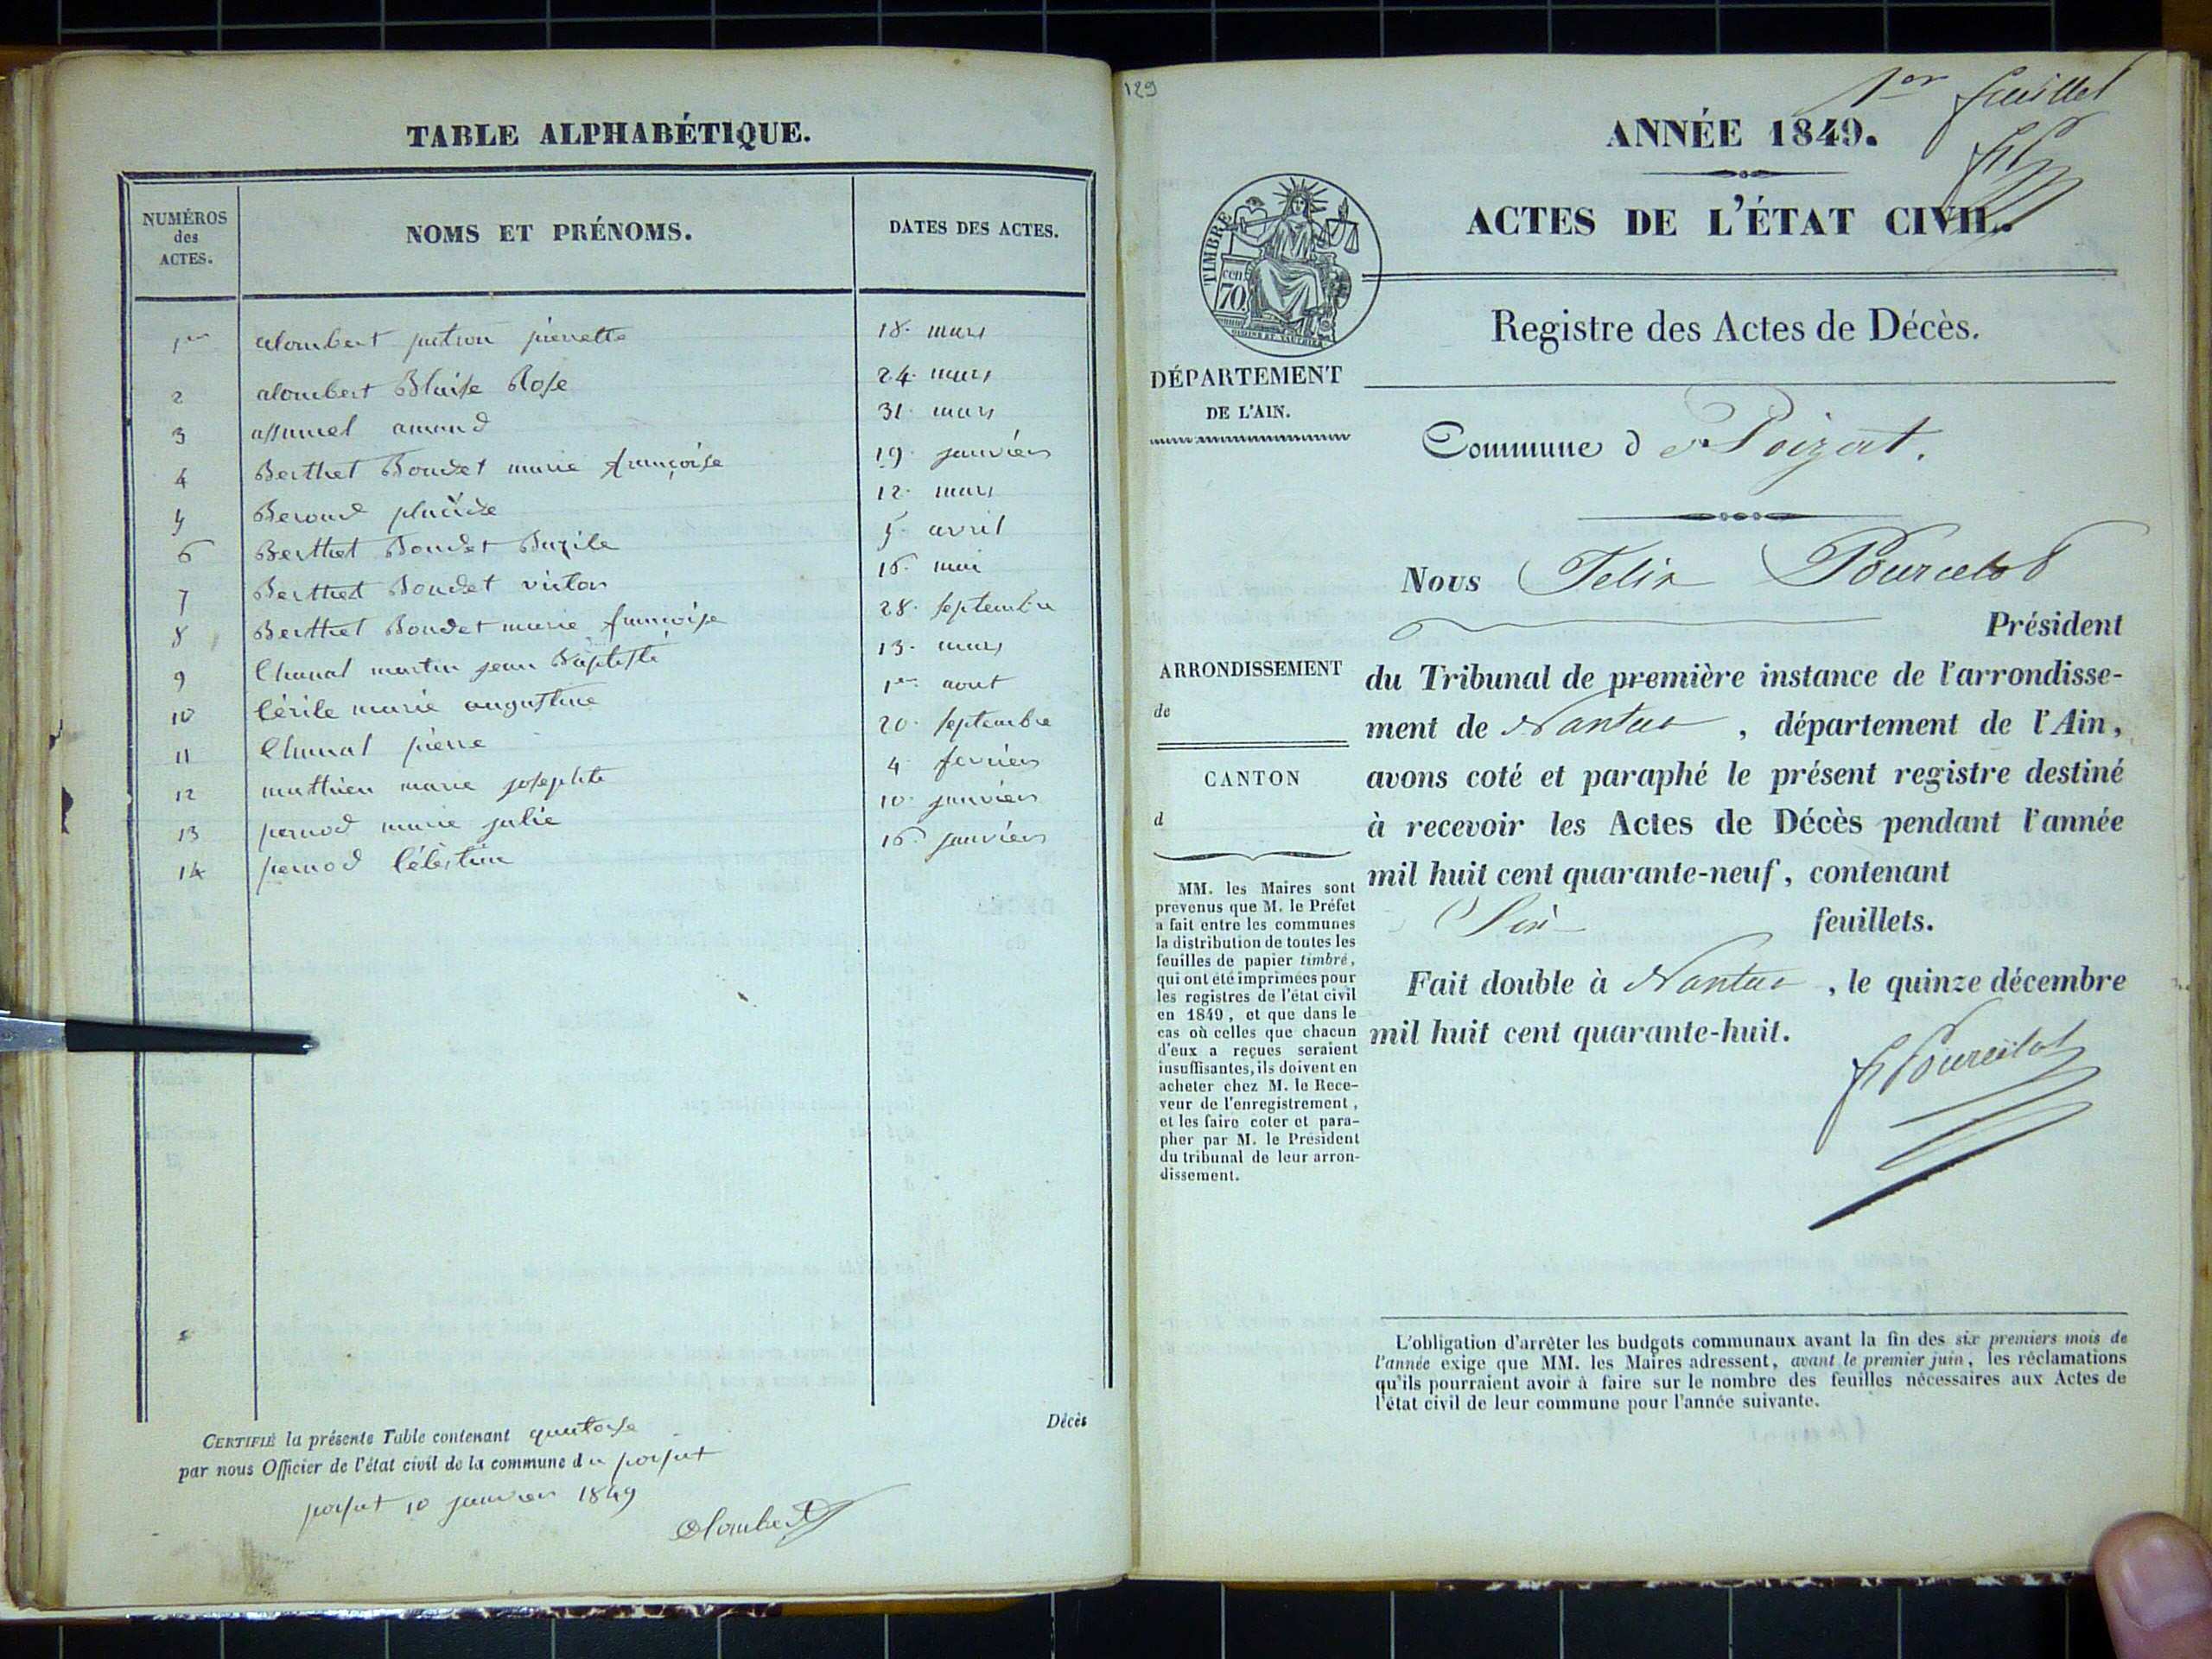 TABLE ALPHABÉTIQUE.
NUMÉROS des ACTES. NOMS ET PRÉNOMS. DATES DES ACTES.
1er alombert patron pierrette 18. mars
2 alombert Blaise Rose 24. mars
3 assumel amand 31. mars
4 Berthet Bondet marie françoise 19. janvier
5 Beroud placide 12. mars
6 Berthet Bondet Bazile 5 avril
7 Berthet Bondet victor 16. mai
8 Berthet Bondet marie françoise 28. septembre
9 Chanal martin jean Baptiste 13. mars
10 Cécile marie augustine 1er aout
11 Chanal pierre 20. septembre
12 mathieu marie josephte 4 fevrier
13 pernod marie julie 10. janvier
14 pernod Célestin 16 janvier
Décès
CERTIFIÉ la présente Table contenant quatorse
par nous Officier de l'état civil de la commune du poisat
poisat 10 janvier 1849
alombert
129
1er feuillet
ANNÉE 1849.
ACTES DE L'ÉTAT CIVIL.
TIMBRE
70 cen
Registre des Actes de Décès.
DÉPARTEMENT
DE L'AIN.
Commune d u Poizat.
Nous Felix Pourcelot
Président
ARRONDISSEMENT
de
CANTON
d
du Tribunal de première instance de l'arrondisse-
ment de Nantua , département de l'Ain,
avons coté et paraphé le présent registre destiné
à recevoir les Actes de Décès pendant l'année
mil huit cent quarante-neuf, contenant
Six feuillets.
Fait double à Nantua , le quinze décembre
mil huit cent quarante-huit.
F Pourcelot
MM. les Maires sont
prévenus que M. le Préfet
a fait entre les communes
la distribution de toutes les
feuilles de papier timbré,
qui ont été imprimées pour
les registres de l'état civil
en 1849, et que dans le
cas où celles que chacun
d'eux a reçues seraient
insuffisantes, ils doivent en
acheter chez M. le Rece-
veur de l'enregistrement,
et les faire coter et para-
pher par M. le Président
du tribunal de leur arron-
dissement.
L'obligation d'arrêter les budgets communaux avant la fin des six premiers mois de
l'année exige que MM. les Maires adressent, avant le premier juin, les réclamations
qu'ils pourraient avoir à faire sur le nombre des feuilles nécessaires aux Actes de
l'état civil de leur commune pour l'année suivante.